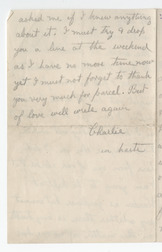 asked me if I knew anything
about it. I must try & drop
you a line at the weekend
as I have no more time now
yet I must not forget to thank
you very much for parcel. Best
of love will write again
Charlie
in haste